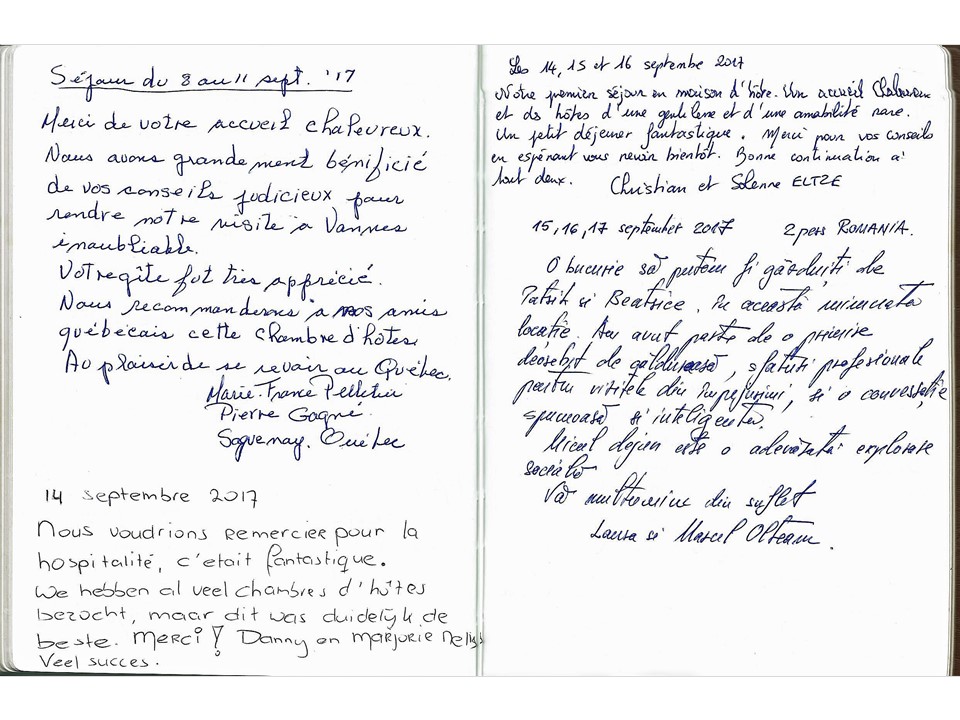 Séjour du 8 au 11 sept. '17
Merci de votre accueil chaleureux.
Nous avons grandement bénificié
de vos conseils judicieux pour
rendre notre visite à Vannes
inoubliable.
Votre gîte fut très apprécié.
Nous recommanderons à nos amis
québécais cette chambre d'hôtes.
Au plaisir de se revoir au Québec.
Marie-France Pelletier
Pierre Gagné
Saguenay. Québec
14 septembre 2017
Nous voudrions remercier pour la
hospitalité, c'etait fantastique.
We hebben al veel chambres d'hôtes
bezocht, maar dit was duidelijk de
beste. Merci! Danny en Marjorie
Veel succes.
Les 14, 15 et 16 septembre 2017
Notre premier séjour en maison d'hôte. Un accueil chaleureux
et des hôtes d'une gentillesse et d'une amabilité rare.
Un petit déjeuner fantastique. Merci pour vos conseils
en espérant vous revoir bientôt. Bonne continuation à
tout deux. Christian et Solenne ELTZE
15, 16, 17 september 2017 2 pers ROMANIA.
O bucurie să putem fi găzduiți de
Patrik si Beatrice. In această minunată
locație. Am avut parte de o primire
deosebit de călduroasă, sfaturi profesionale
pentru vizitele din împrejurimi, si o conversație
spumoasă si inteligentă.
Micul dejun este o adevărată explorare
socială
Vă multumim din suflet
Laura si Marcel Olteanu.